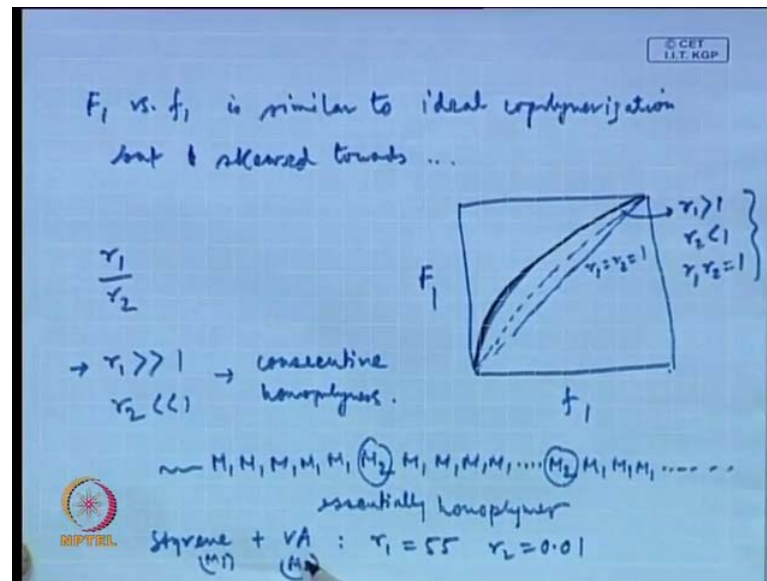 © CET
I.I.T. KGP
F₁ vs. f₁ is similar to ideal copolymerization
but skewed towards ...
r₁ / r₂
F₁
f₁
r₁ = r₂ = 1
r₁ > 1
r₂ < 1
r₁ r₂ = 1
→ r₁ >> 1 → consecutive
r₂ << 1 homopolymers.
~~ M₁ M₁ M₁ M₁ M₁ M₂ M₁ M₁ M₁ M₁ .... M₂ M₁ M₁ M₁ ......
essentially homopolymer
Styrene + VA : r₁ = 55 r₂ = 0.01
(M₁)
NPTEL